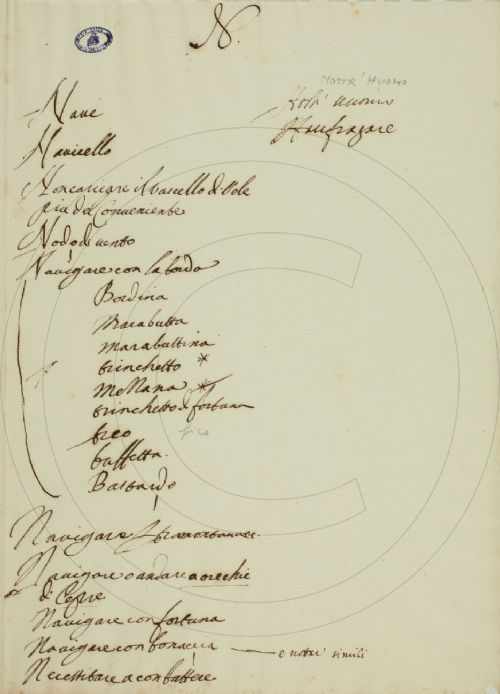 N.
Nave
Navicello
Non caricare il vascello di Vele
piu del Conveniente
Nodo di vento
Navigare con la borda
Bordina
Marabutta
marabuttina
trinchetto *
Mezzana *
trinchetto di fortuna
treo
fico
baffetta.
Bastardo
Navigare
Navigare o andare a orecchie
di Lepre
Navigare con fortuna
Navigare con bonaccia — e nostri simili
Necessitare a combattere
NOSTR' HUOMO
Nostr' uomo
Naufragare